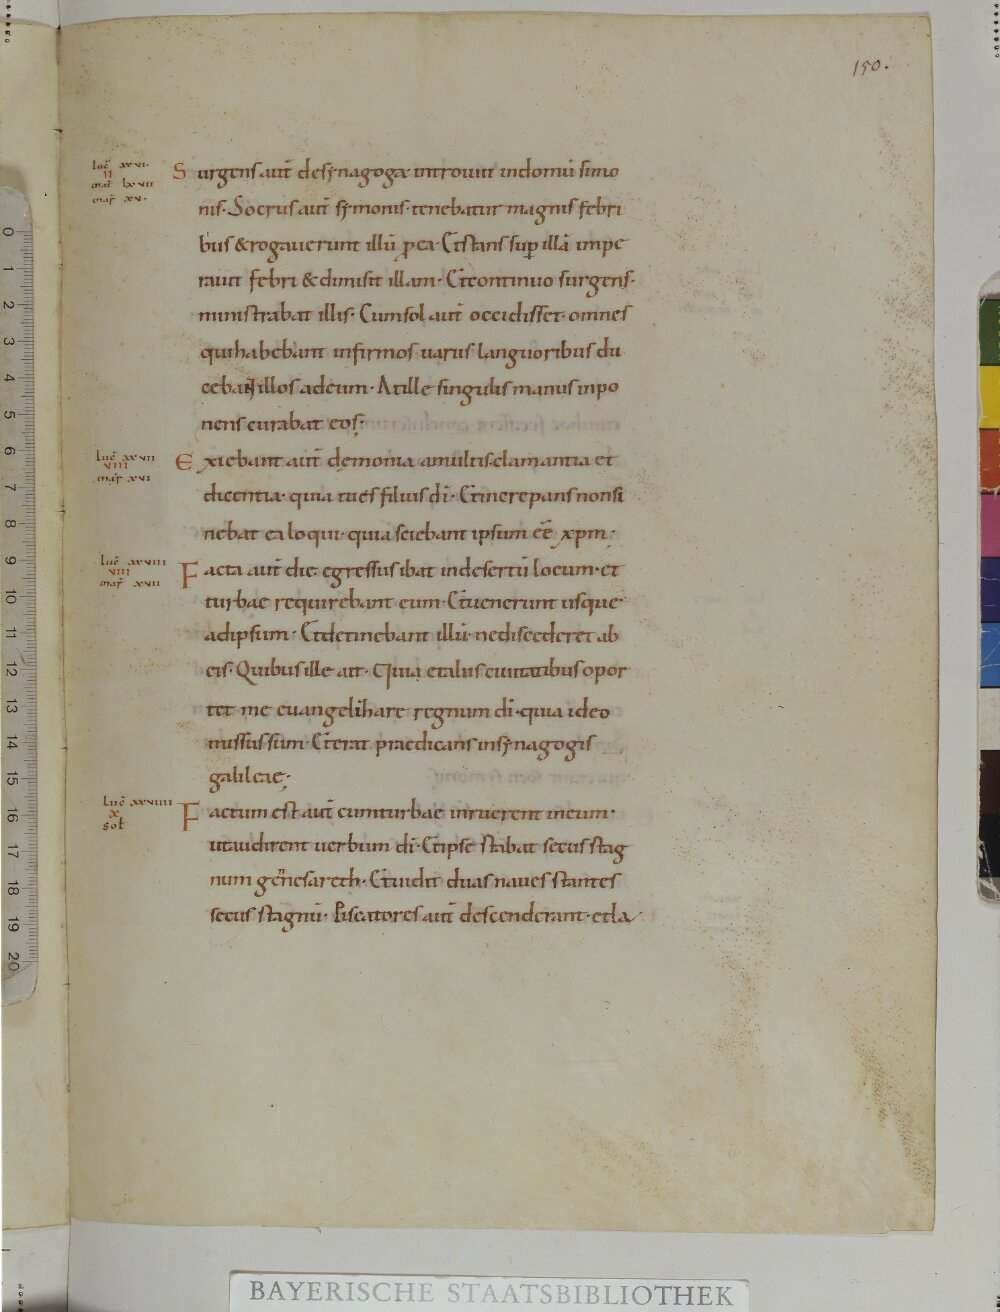 150.
luc̄ xxvi.
II
mat̄ lxvii
mar̄ xv.
Surgens aut̄ desynagoga introivit indomū simo
nis. Socrus aut̄ symonis tenebatur magnis febri
bus & rogauerunt illū ꝓ ea. Et stans suꝑ illā impe
rauit febri & dimisit illam. Et continuo surgens.
ministrabat illis. Cum sol aut̄ occidisset. omnes
qui habebant infirmos uariis languoribus du
cebant illos adeum. At ille singulis manus inpo
nens curabat eos;
luc̄ xxvii
VIII
mar̄ xvi
Exiebant aut̄ dęmonia amultis clamantia et
dicentia. quia tu es filius dī. Et increpans non si
nebat ea loqui. quia sciebant ipsum eē xp̄m.
luc̄ xxviii
VIII
mar̄ xvii
Facta aut̄ die. egressus ibat indesertū locum. et
turbae requirebant eum. Et uenerunt usque
adipsum. Et detinebant illū. nediscederet ab
eis. Quibus ille ait. Quia et aliis ciuitatibus opor
tet me euangelizare regnum dī. quia ideo
missus sum. Et erat praedicans insynagogis
galileae;
luc̄ xxviiii
x
sol
Factum est aut̄ cum turbae inruerent ineum.
ut audirent uerbum dī. Et ipse stabat secus stag
num genesareth. Et uidit duas naues stantes
secus stagnū. Piscatores aut̄ descenderant. et la
0
1
2
3
4
5
6
7
8
9
10
11
12
13
14
15
16
17
18
19
20
BAYERISCHE STAATSBIBLIOTHEK